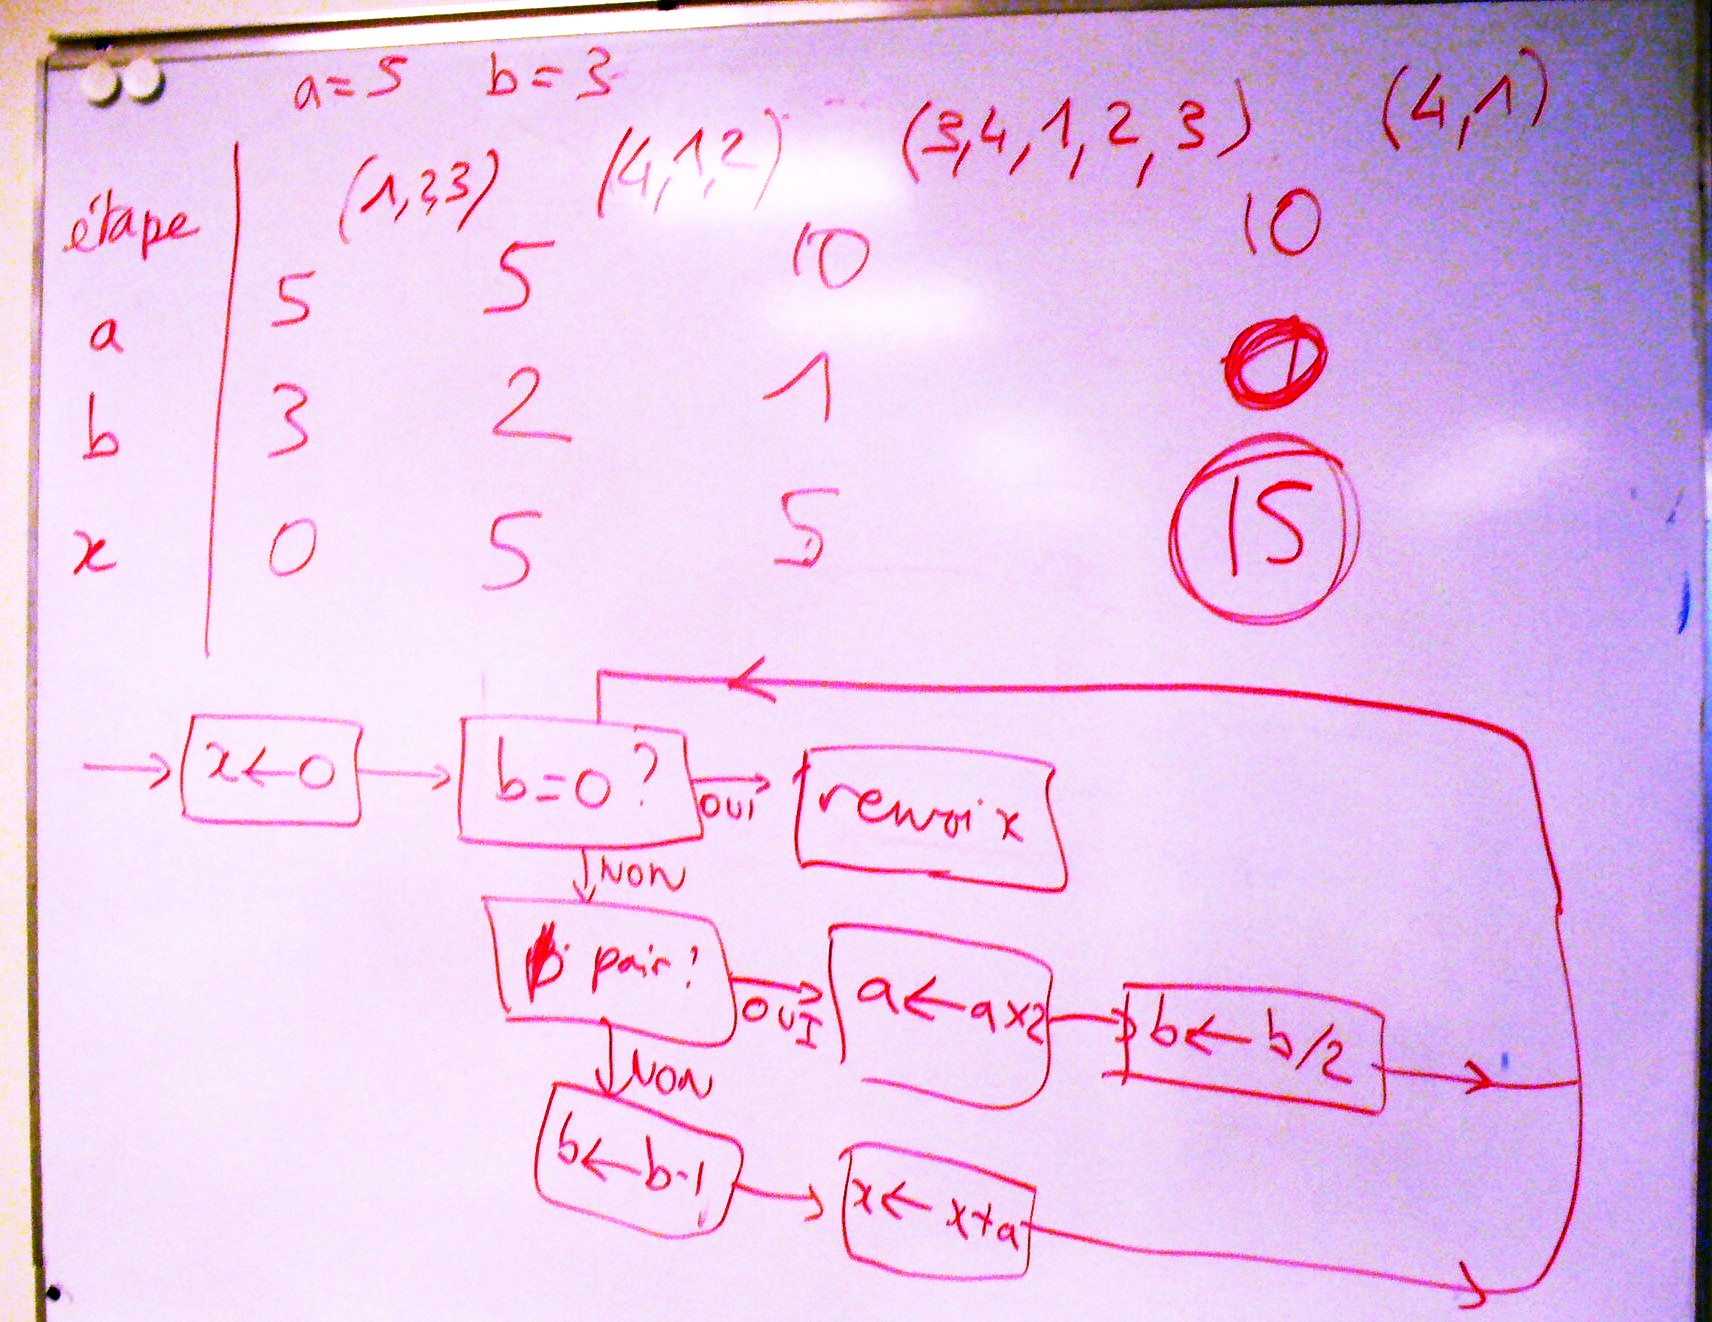 a=5 b=3
étape (1,2,3) (4,1,2) (3,4,1,2,3) (4,1)
a 5 5 10 10
b 3 2 1 0
x 0 5 5 15
x←0 b=0? OUI renvoi x
NON
b pair? OUI a←a×2 b←b/2
NON
b←b-1 x←x+a